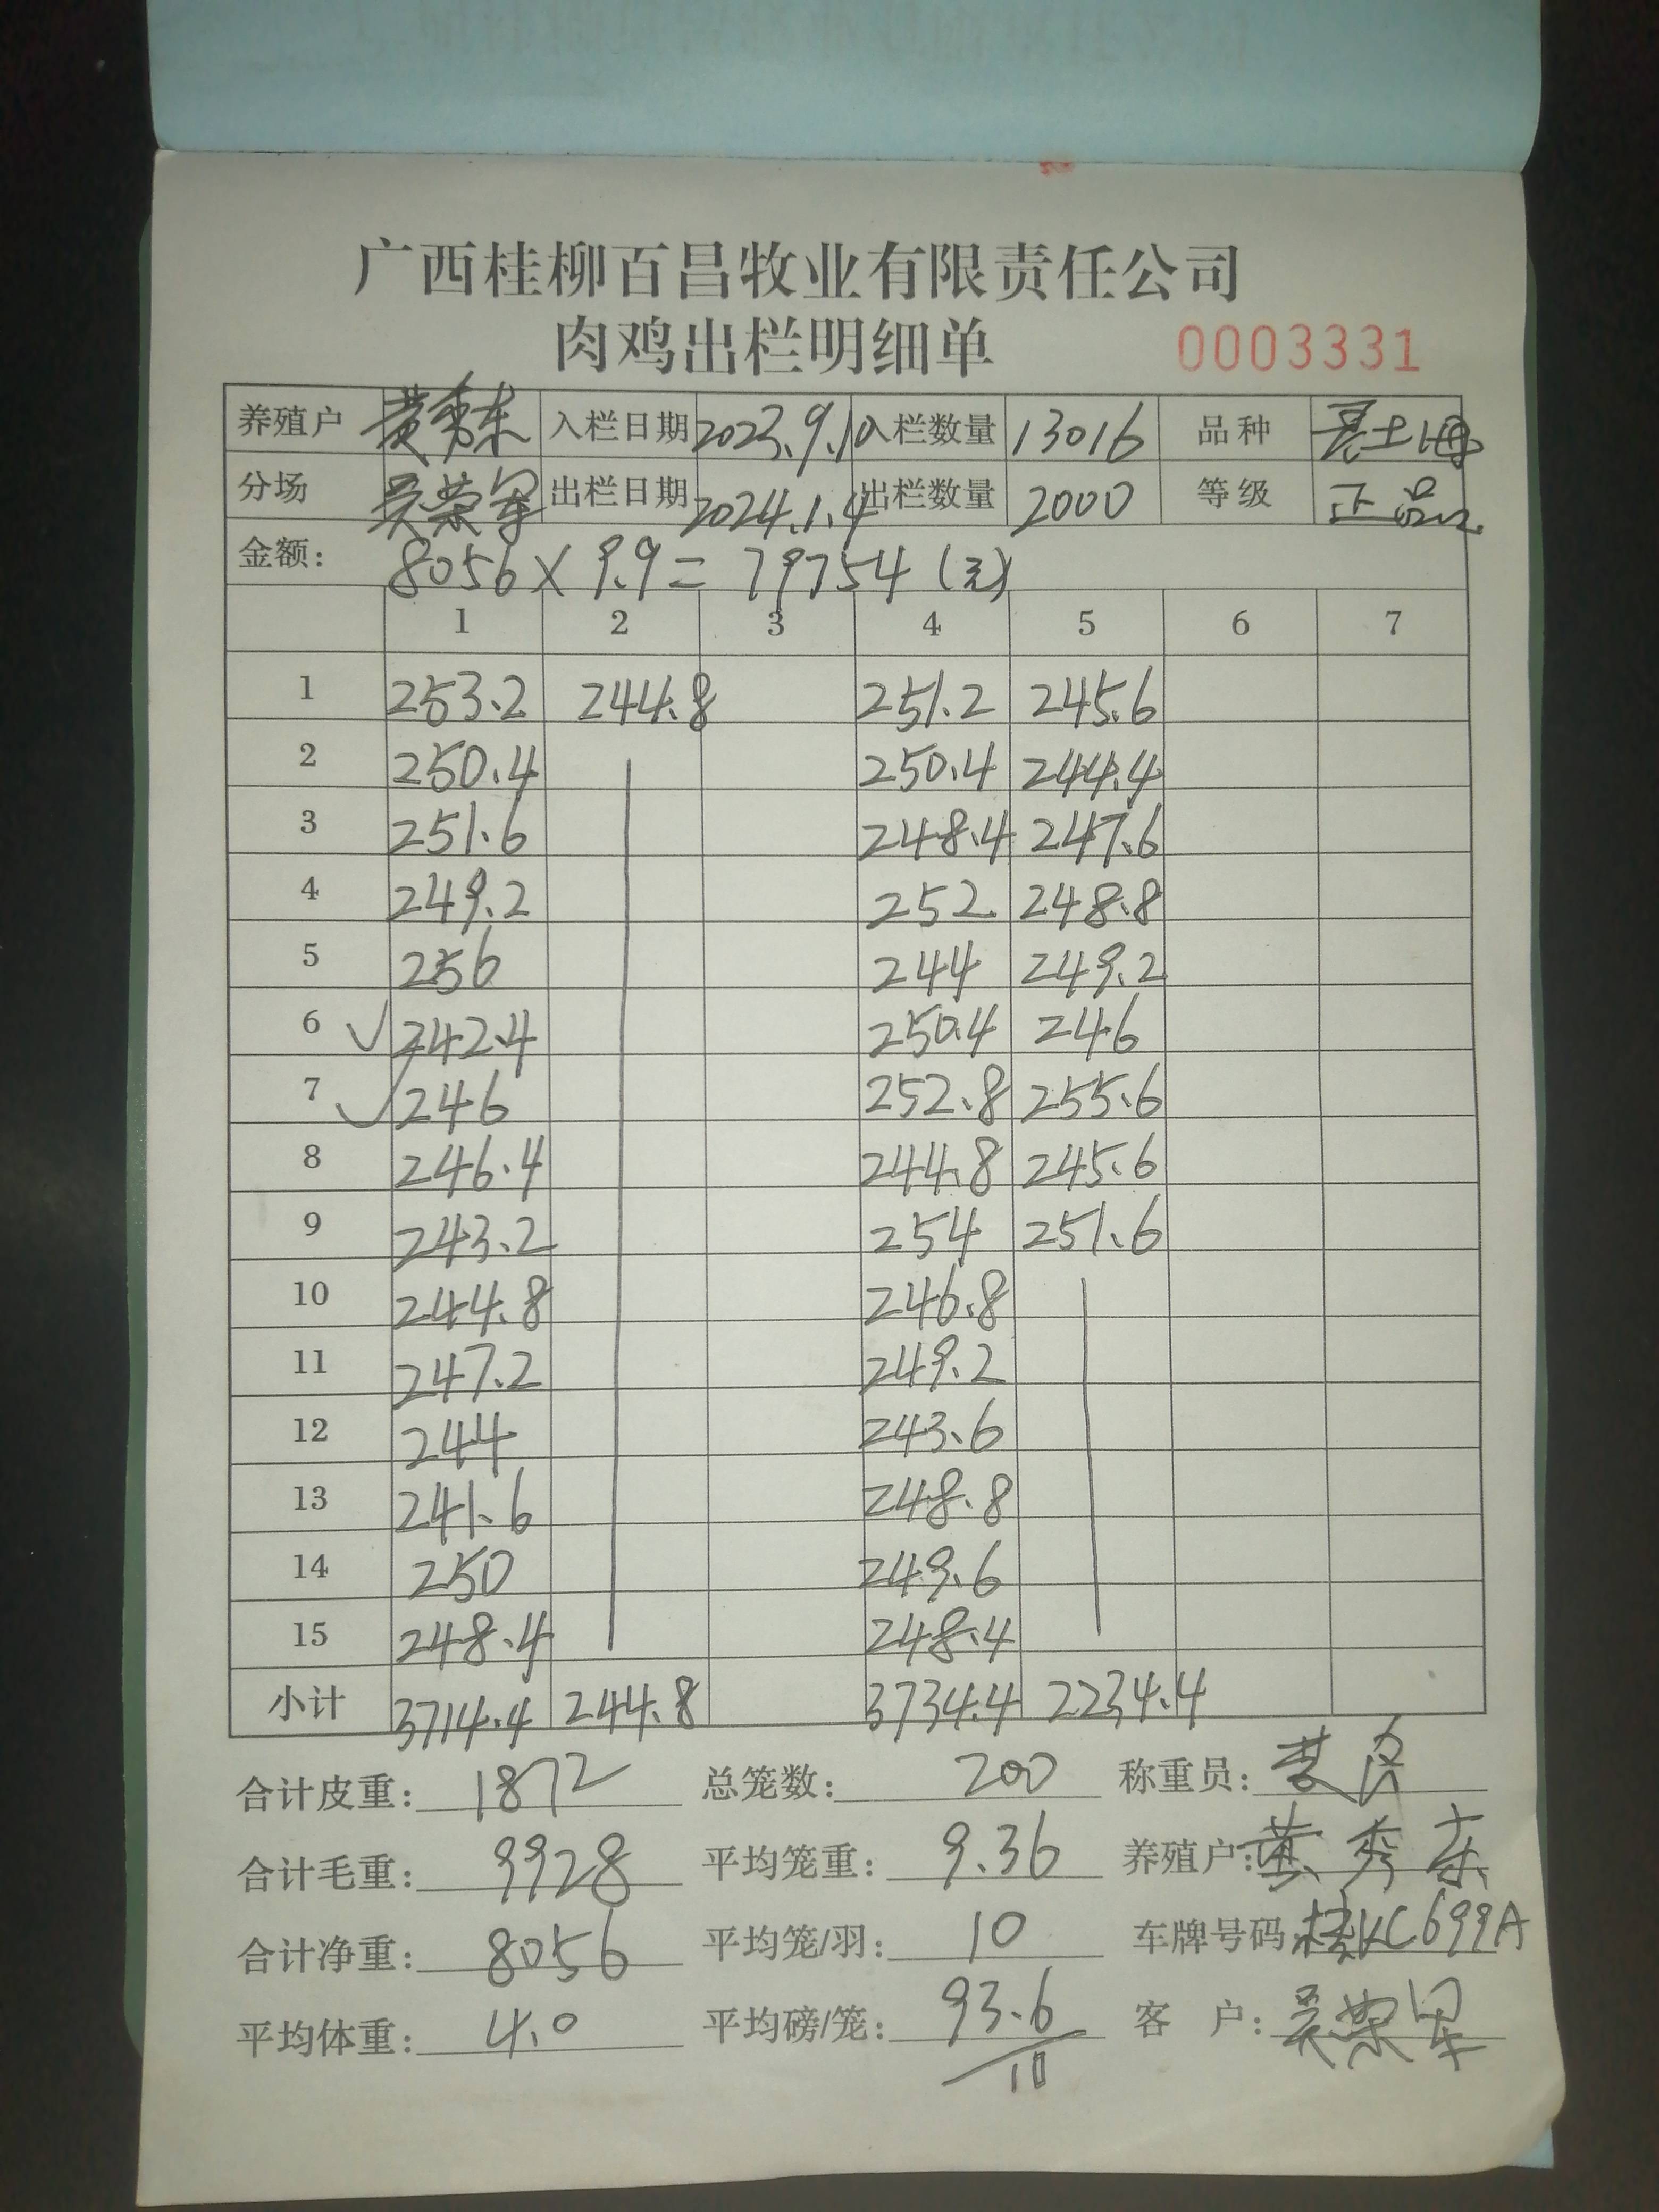 广西桂柳百昌牧业有限责任公司
肉鸡出栏明细单 0003331
养殖户 黄秀东 入栏日期 2023.9.10 入栏数量 13016 品种 土
分场 吴荣军 出栏日期 2024.1.4 出栏数量 2000 等级 正品
金额: 8056×9.9=79754(元)
1 2 3 4 5 6 7
1 253.2 244.8 251.2 245.6
2 250.4 250.4 244.4
3 251.6 248.4 247.6
4 249.2 252 248.8
5 256 244 249.2
6 √ 242.4 250.4 246
7 √ 246 252.8 255.6
8 246.4 244.8 245.6
9 243.2 254 251.6
10 244.8 246.8
11 247.2 249.2
12 244 243.6
13 241.6 248.8
14 250 249.6
15 248.4 248.4
小计 3714.4 244.8 3734.4 2234.4
合计皮重: 1872 总笼数: 200 称重员:
合计毛重: 9928 平均笼重: 9.36 养殖户: 黄秀东
合计净重: 8056 平均笼/羽: 10 车牌号码: 桂KC699A
平均体重: 4.0 平均磅/笼: 93.6 客 户: 吴荣军
10